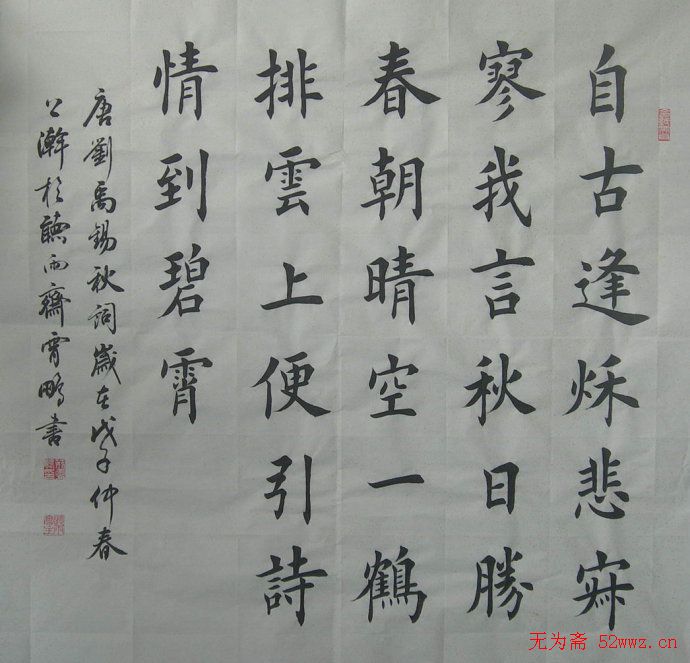 自古逢秌悲寂
寥我言秋日勝
春朝晴空一鶴
排雲上便引詩
情到碧霄
唐劉禹錫秋詞歲在戊子仲春
公瀚於聽雨齋霄鵬書
无为斋 52wwz.cn